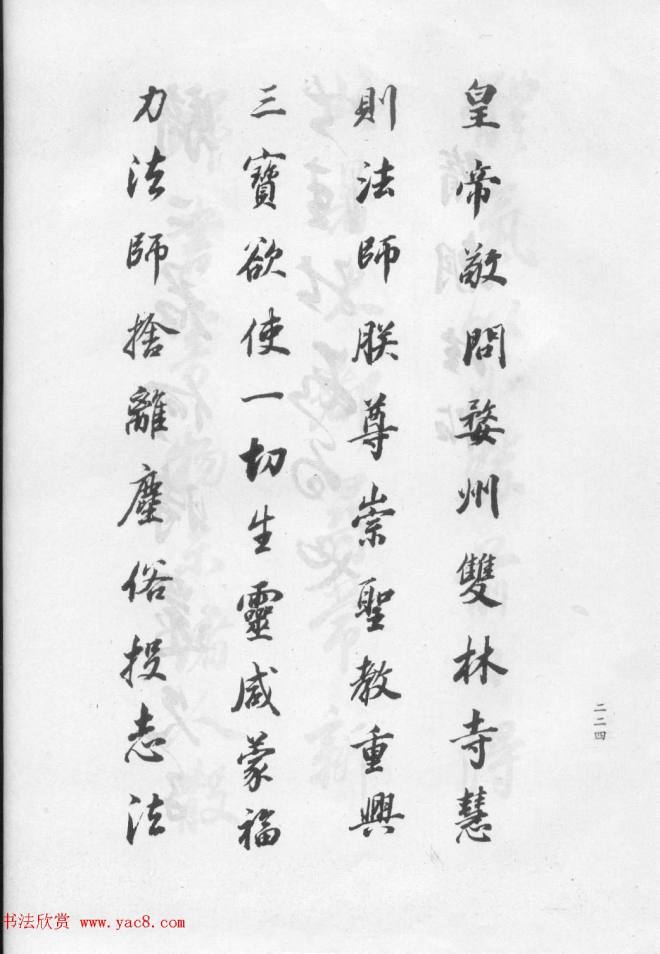 皇帝敬問婺州雙林寺慧
則法師朕尊崇聖教重興
三寶欲使一切生靈咸蒙福
力法師捨離塵俗投志法
二二四
书法欣赏 www.yac8.com